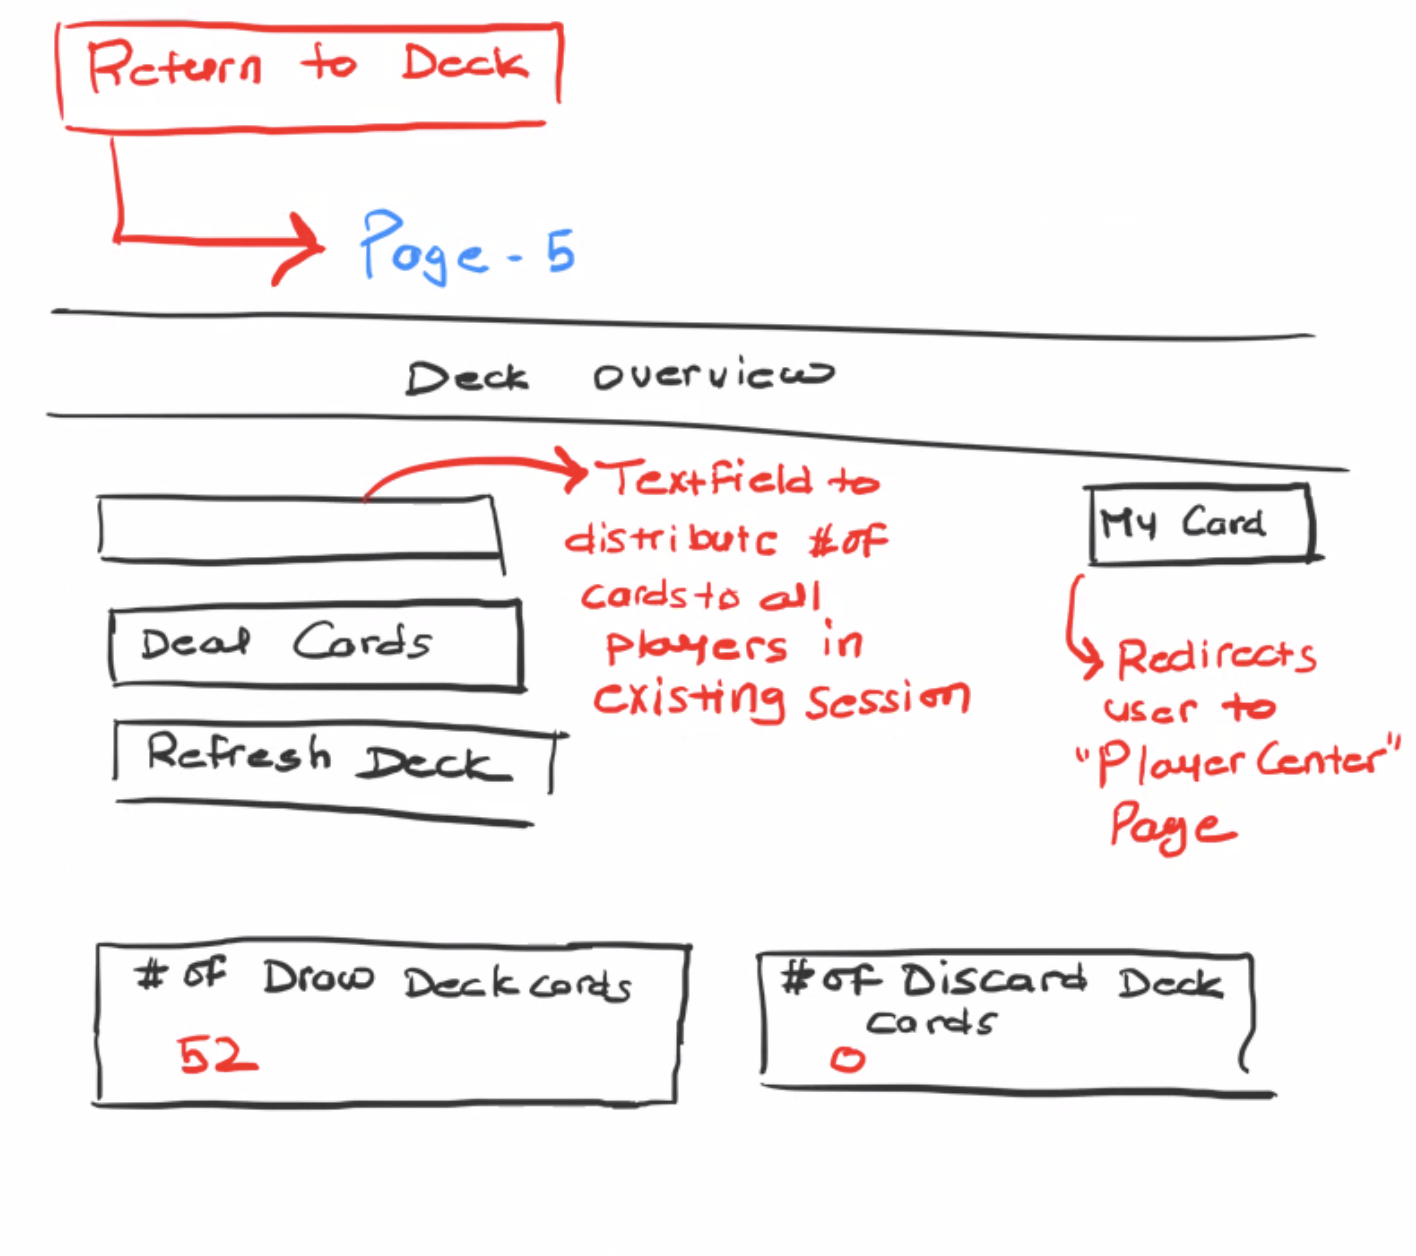 Return to Deck
Page - 5
Deck overview
Textfield to
distribute # of
cards to all
players in
existing session
My Card
Deal Cards
Refresh Deck
Redirects
user to
"Player Center"
Page
# of Draw Deck cards
52
# of Discard Deck
cards
0